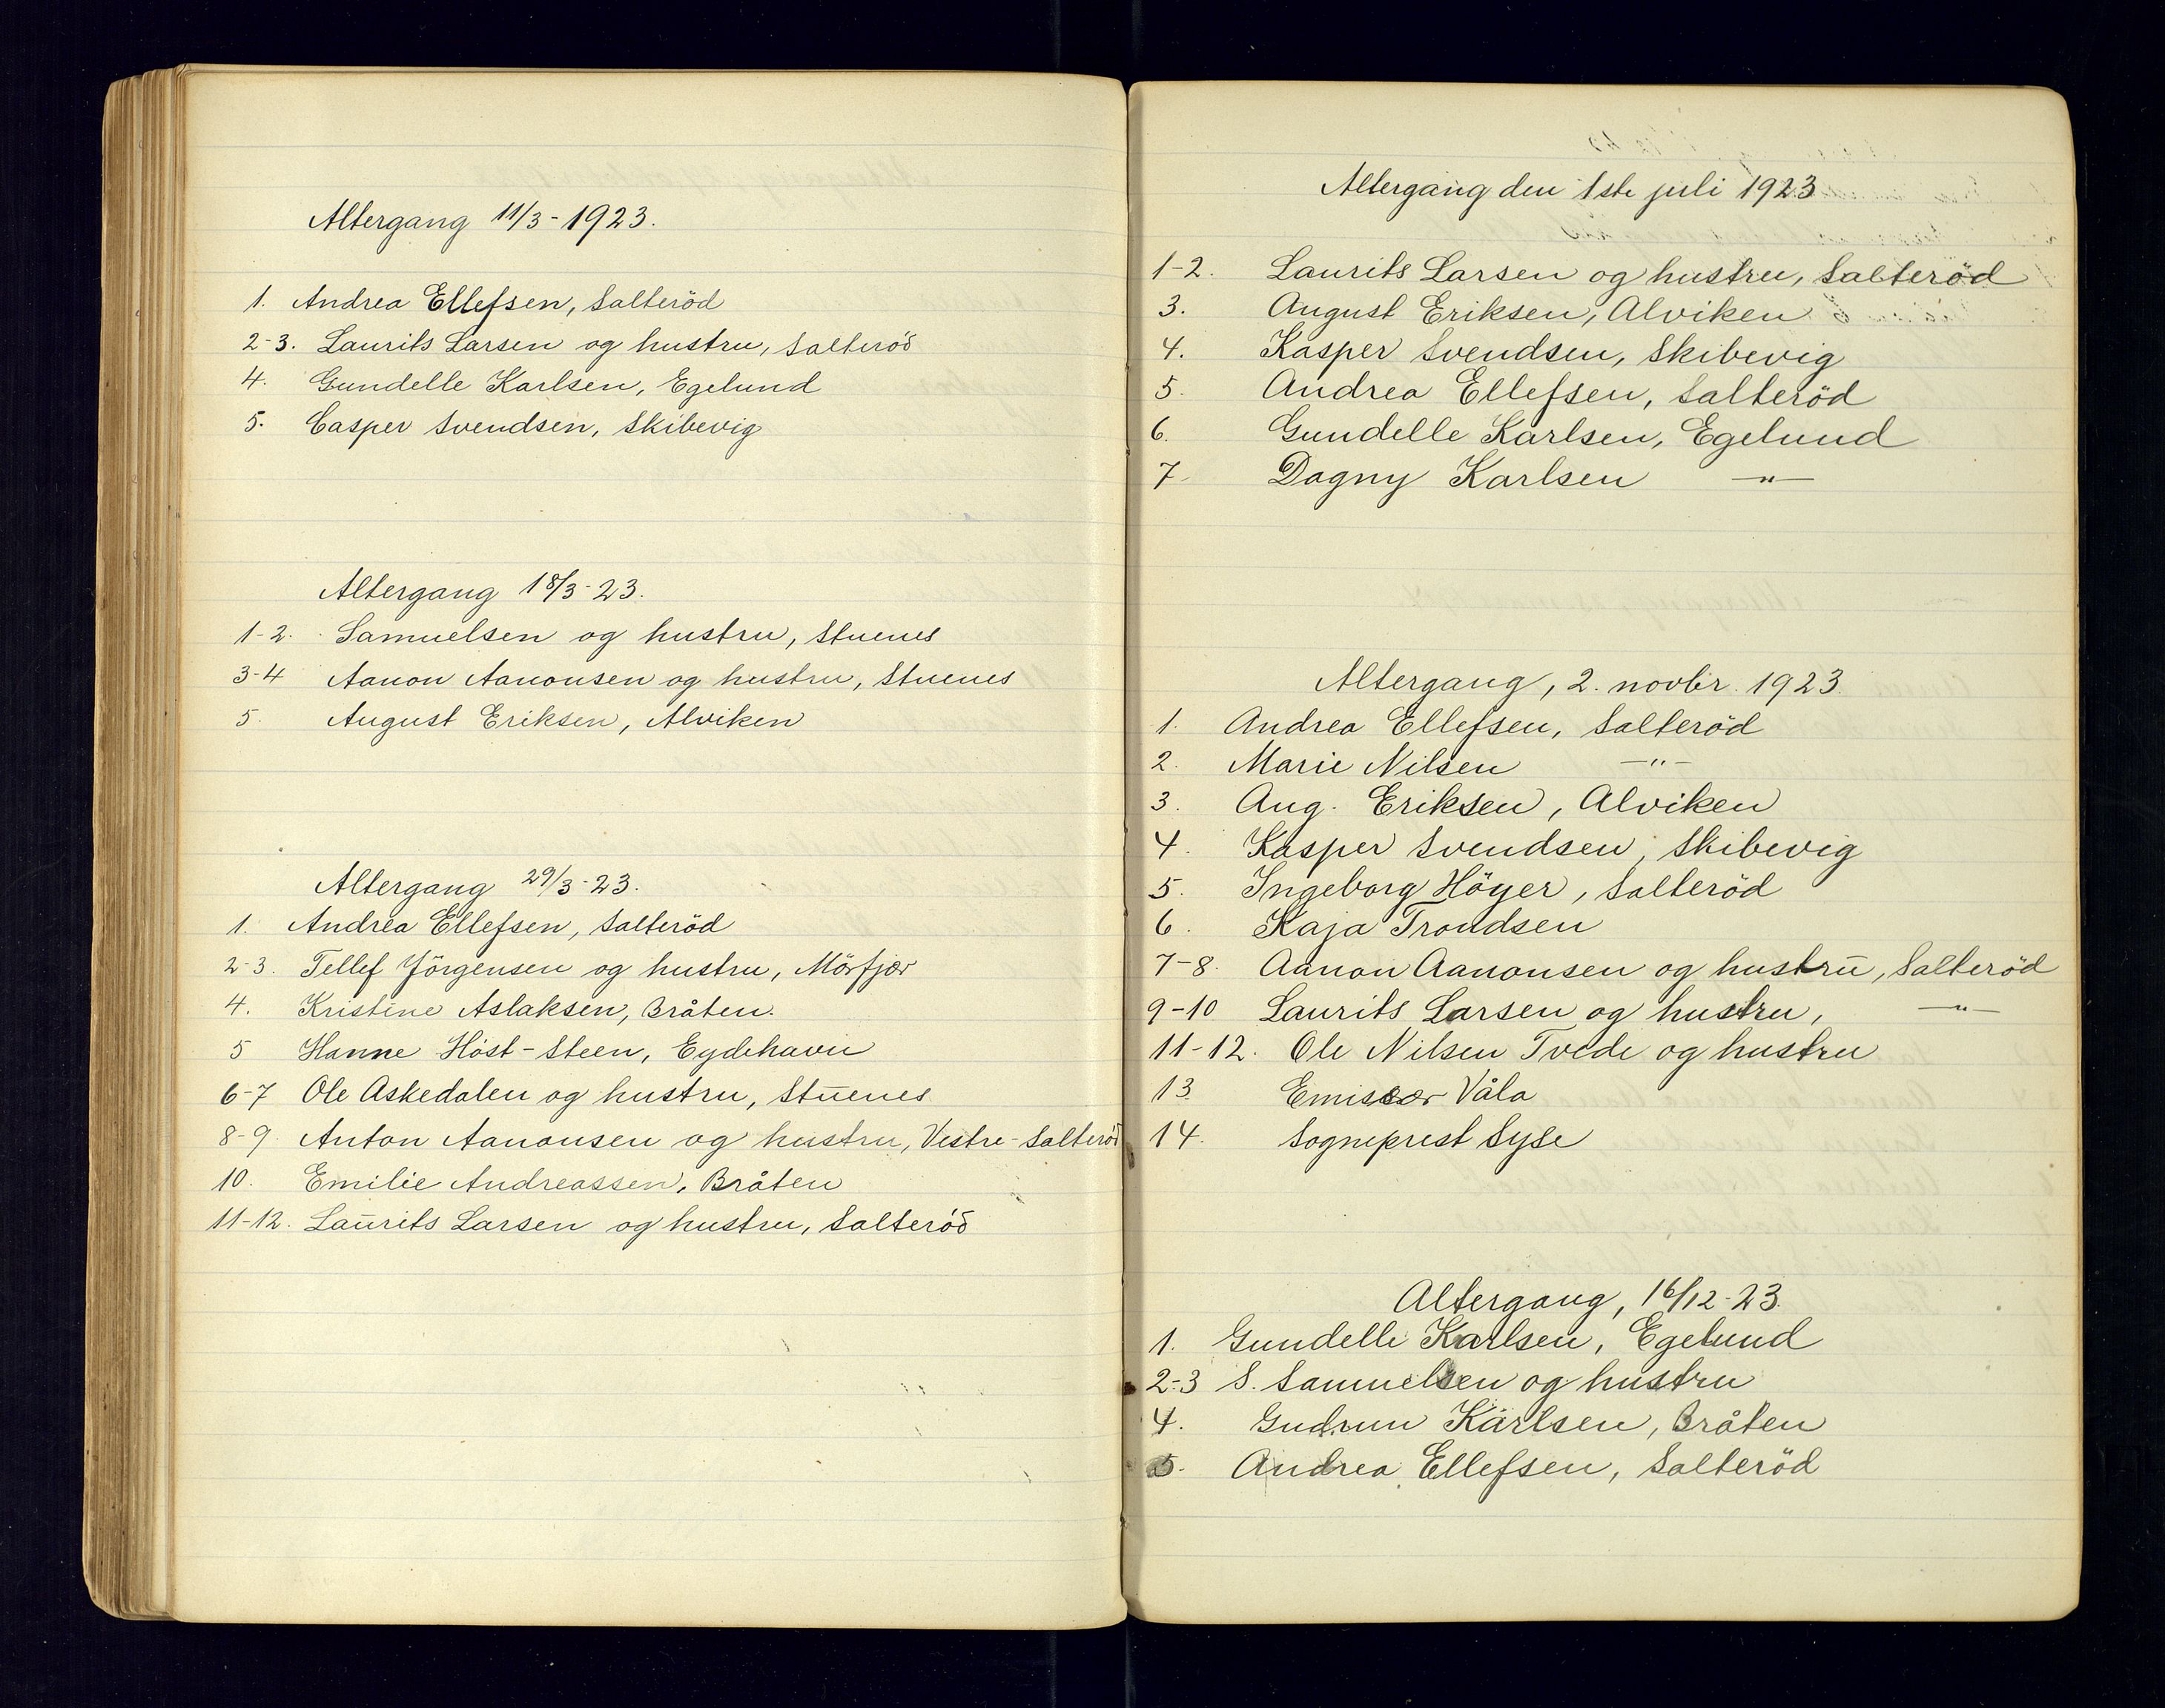 Altergang 11/3-1923.
1. Andrea Ellefsen, Salteröd
2-3. Laurits Larsen og hustru, Salteröd
4. Gundelle Karlsen, Egelund
5. Casper Svendsen, Skibevig
Altergang 18/3-23.
1-2. Samuelsen og hustru, Stuenes
3-4 Aanon Aanonsen og hustru, Stuenes
5. August Eriksen, Alviken
Altergang 29/3-23.
1. Andrea Ellefsen, Salteröd
2-3. Tellef Jörgensen og hustru, Mörfjær
4. Kristine Aslaksen, Bråten.
5 Hanne Höst-Steen, Eydehavn
6-7 Ole Askedalen og hustru, Stuenes
8-9. Anton Aanonsen og hustru, Vestre-Salteröd
10. Emilie Andreassen, Bråten
11-12. Laurits Larsen og hustru, Salteröd
Altergang den 1ste juli 1923
1-2. Laurits Larsen og hustru, Salteröd
3. August Eriksen, Alviken
4. Kasper Svendsen, Skibevig
5. Andrea Ellefsen, Salteröd
6. Gundelle Karlsen, Egelund
7- Dagny Karlsen —"—
Altergang, 2. novbr. 1923.
1. Andrea Ellefsen, Salteröd
2. Marie Nilsen —"—
3. Aug. Eriksen, Alviken
4. Kasper Svendsen, Skibevig
5. Ingeborg Höyer, Salteröd
6. Kaja Trondsen
7-8. Aanon Aanonsen og hustru, Salteröd
9-10 Laurits Larsen og hustru, —"—
11-12. Ole Nilsen Tvede og hustru
13 Emissær Våla
14. Sogneprest Syse
Altergang, 16/12-23.
1. Gundelle Karlsen, Egelund
2-3 S. Samuelsen og hustru
4. Gudrun Karlsen, Bråten
5. Andrea Ellefsen, Salteröd